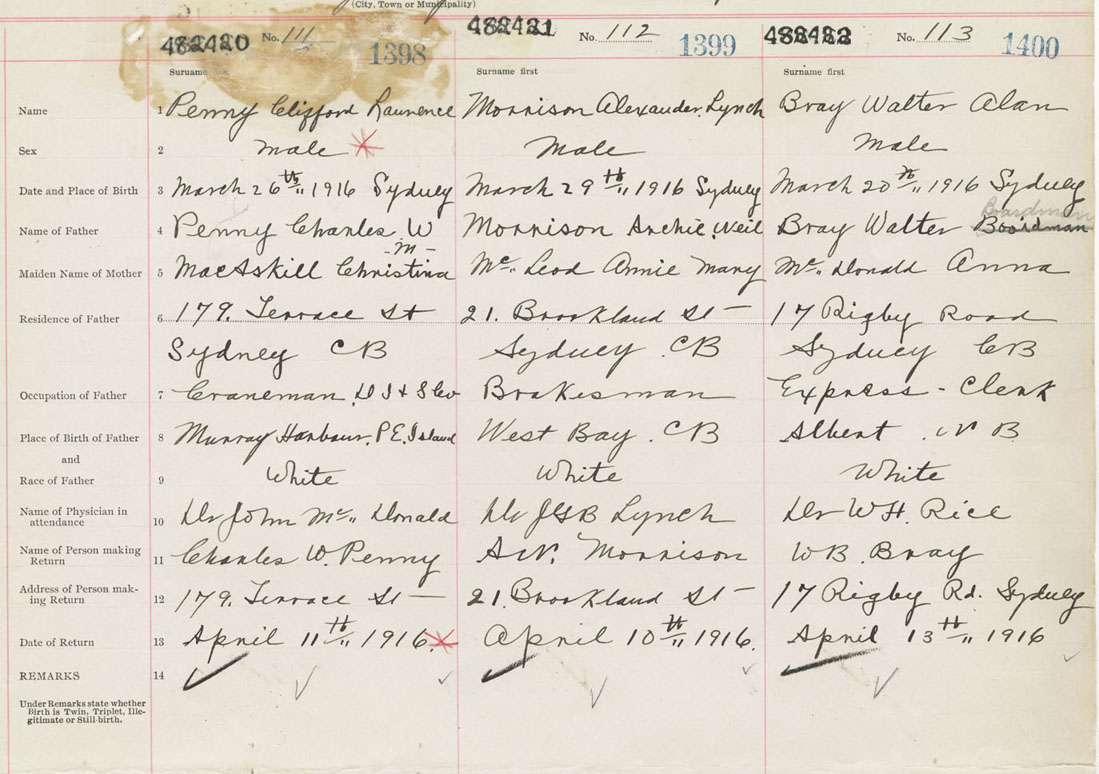 (City, Town or Municipality)
482420 No. 111 1398 482421 No. 112 1399 482422 No. 113 1400
Surname first Surname first Surname first
Name 1 Penny Clifford Laurence Morrison Alexander Lynch Bray Walter Alan
Sex 2 Male Male Male
Date and Place of Birth 3 March 26th 1916 Sydney March 29th 1916 Sydney March 20th 1916 Sydney
Boardman
Name of Father 4 Penny Charles W Morrison Archie Neil Bray Walter Boardman
M
Maiden Name of Mother 5 MacAskill Christina Mc Leod Annie Mary Mc Donald Anna
Residence of Father 6 179. Terrace St 21. Brookland St 17 Rigby Road
Sydney CB Sydney CB Sydney CB
Occupation of Father 7 Craneman D I & S Co Brakesman Express - Clerk
Place of Birth of Father 8 Murray Harbour, P E Island West Bay. CB Albert. N B
and
Race of Father 9 White White White
Name of Physician in attendance 10 Dr John Mc Donald Dr JGB Lynch Dr W H. Rice
Name of Person making Return 11 Charles W. Penny A N. Morrison W B. Bray
Address of Person making Return 12 179. Terrace St 21. Brookland St 17 Rigby Rd. Sydney
Date of Return 13 April 11th 1916 April 10th 1916. April 13th 1916
REMARKS 14
Under Remarks state whether
Birth is Twin, Triplet, Ille-
gitimate or Still-birth.